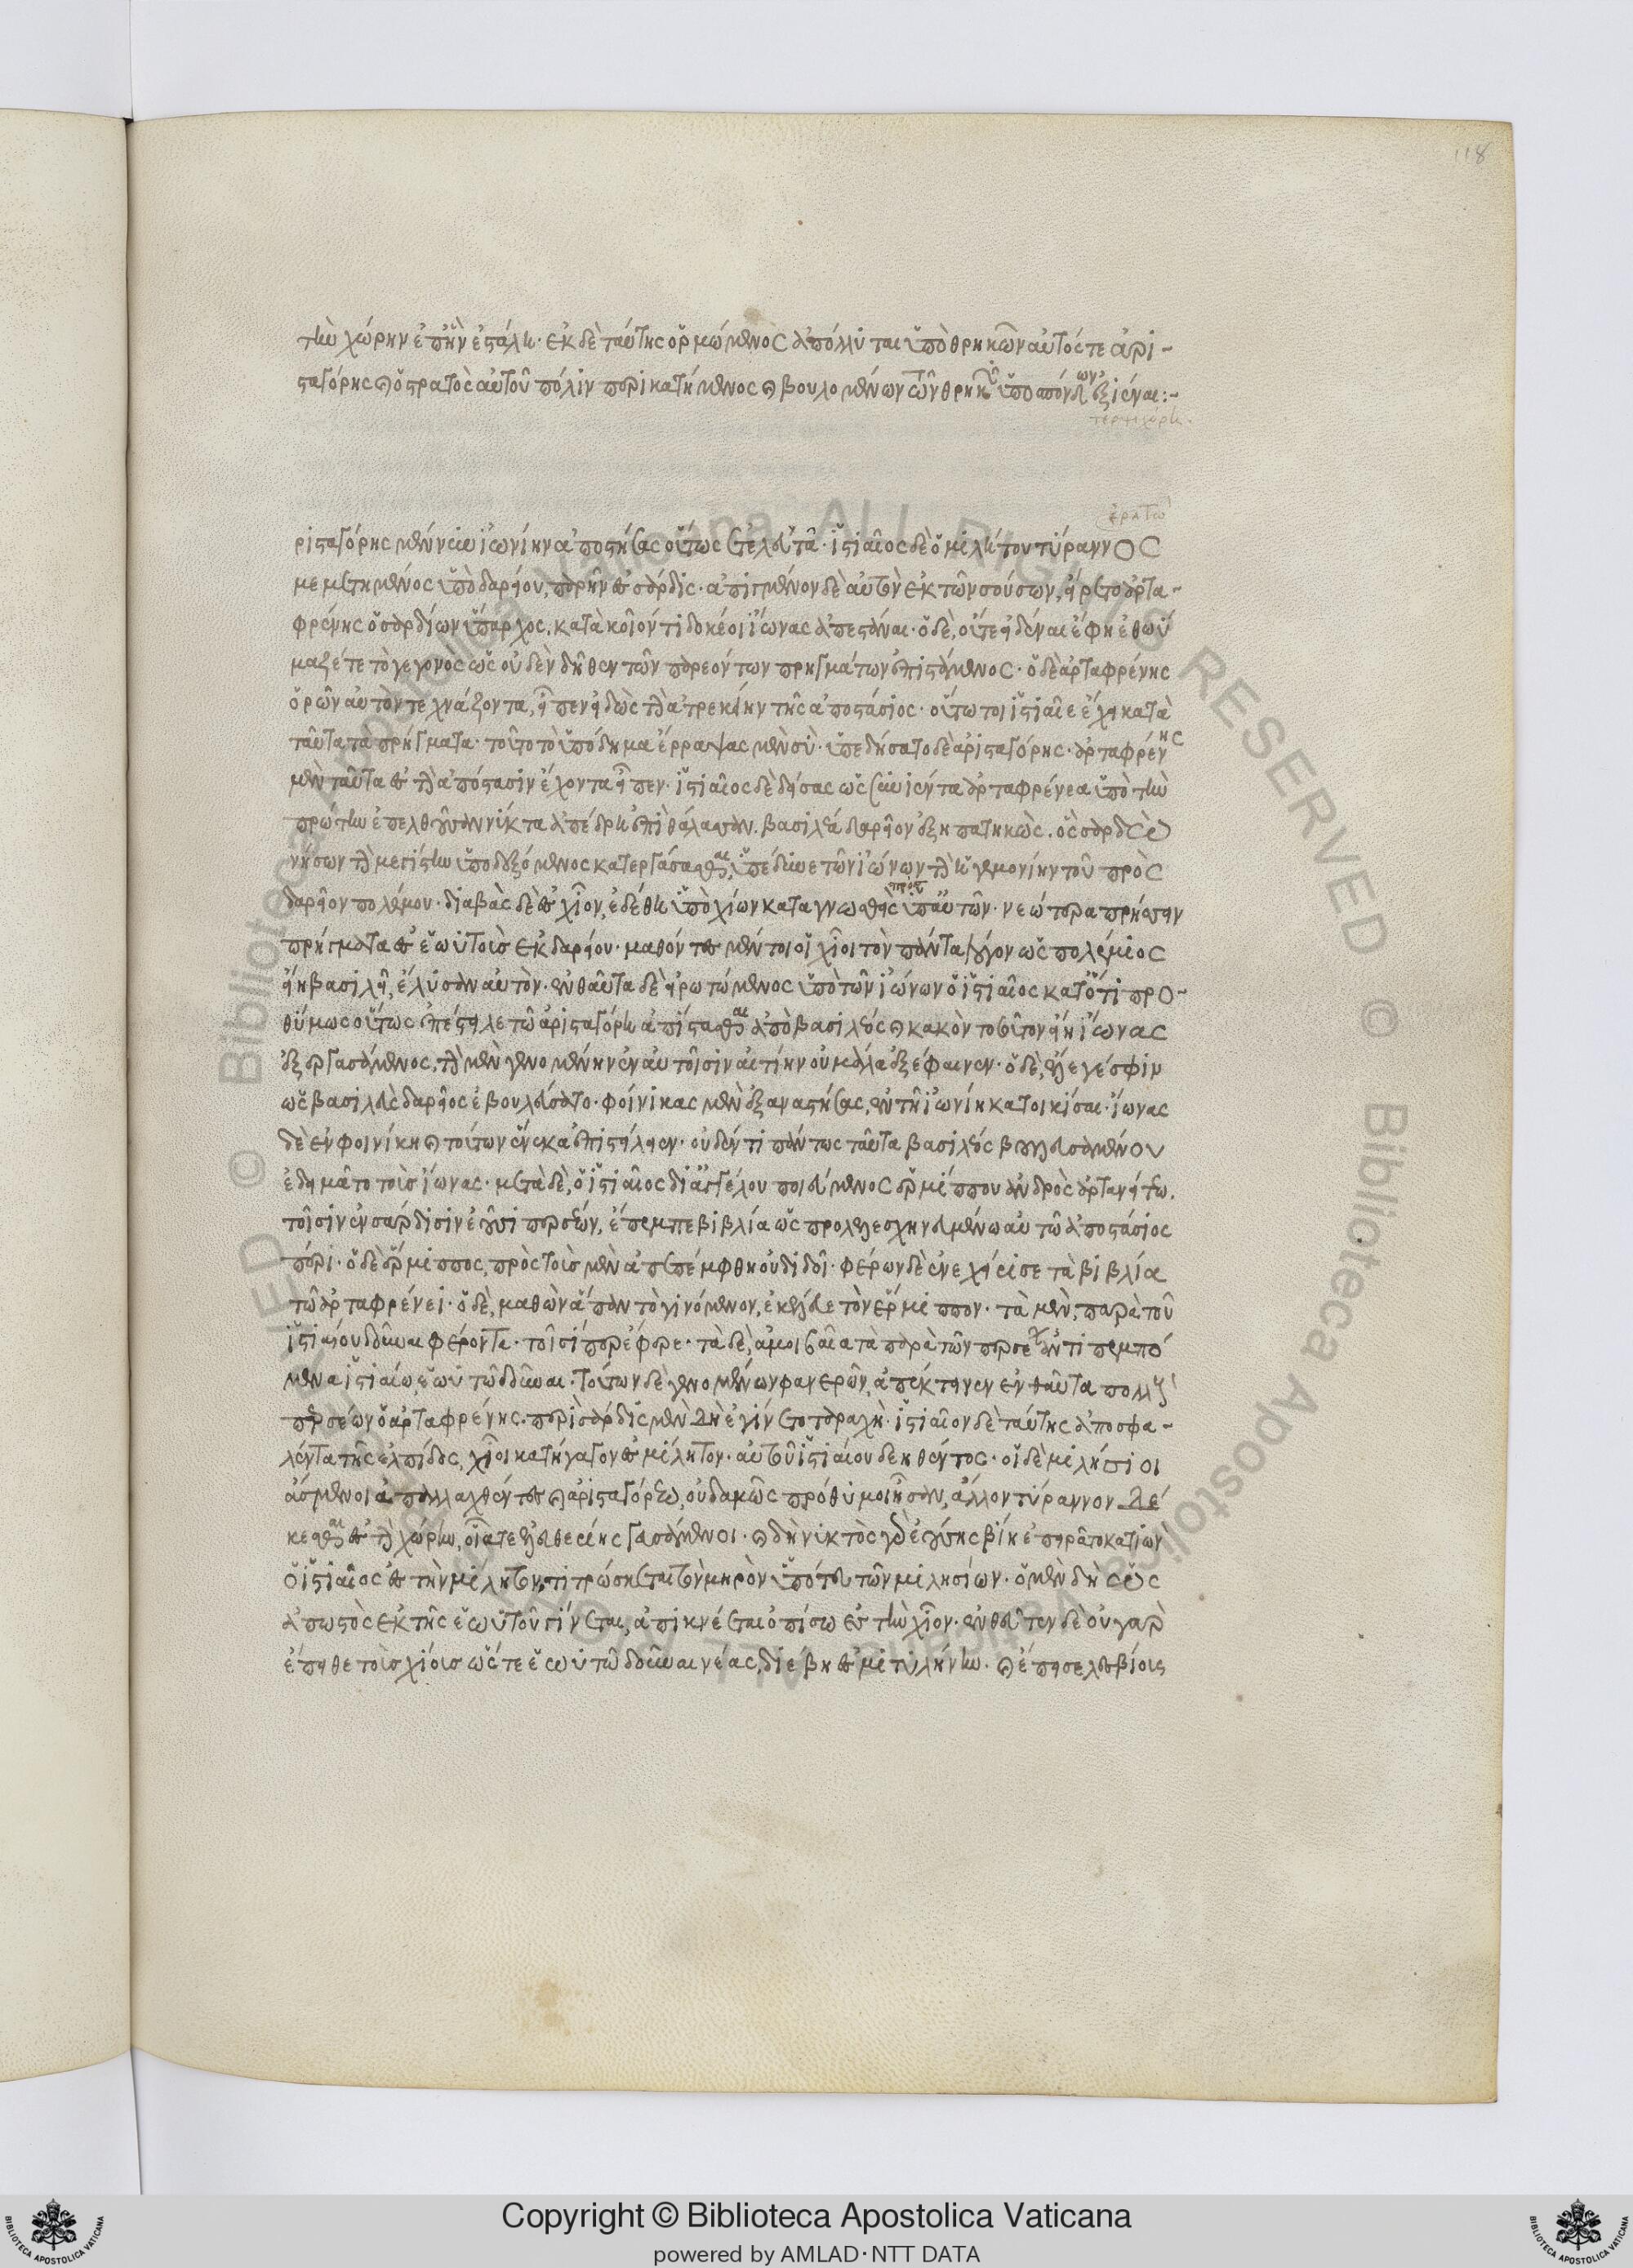 118
τὴν χώρην ἐπ' ἣν ἐστάλη· ἐκ δὲ ταύτης ὁρμώμενος ἀπόλλυται ὑπὸ θρηκῶν αὐτός τε ἀρι-
σταγόρης καὶ ὁ στρατὸς αὐτοῦ πόλιν περικατήμενος καὶ βουλομένων τῶν θρηκῶν ὑποσπόνδων ἐξιέναι:-
τερψιχόρη.
ἐρατὼ
ρισταγόρης μέν νυν ἰωνίην ἀποστήσας οὕτως τελευτᾶ· ἱστιαῖος δὲ ὁ μιλήτου τύραννος
μεμετημένος ὑπὸ δαρείου, παρῆν ἐς σάρδις· ἀπιγμένον δὲ αὐτὸν ἐκ τῶν σούσων, εἴρετο ἀρτα-
φρένης ὁ σαρδίων ὕπαρχος, κατὰ κοῖόν τι δοκέοι ἴωνας ἀπεστάναι· ὁ δὲ, οὔτε εἰδέναι ἔφη ἐθωύ
μαζέ τε τὸ γεγονὸς ὡς οὐδὲν δῆθεν τῶν παρεόντων πρηγμάτων ἐπιστάμενος· ὁ δὲ ἀρταφρένης
ὁρῶν αὐτὸν τεχνάζοντα, εἶπεν εἰδὼς τὴν ἀτρεκίην τῆς ἀποστάσιος· οὕτω τοι ἱστιαῖε ἔχει κατὰ
ταῦτα τὰ πρήγματα· τοῦτο τὸ ὑπόδημα ἔρραψας μὲν σύ· ὑπεδήσατο δὲ ἀρισταγόρης· ἀρταφρένης
μὲν ταῦτα ἐς τὴν ἀπόστασιν ἔχοντα εἶπεν· ἱστιαῖος δὲ δείσας ὡς συνιέντα ἀρταφρένεα ὑπὸ τὴν
πρώτην ἐπελθοῦσαν νύκτα ἀπέδρη ἐπὶ θάλασσαν. βασιλέα δαρεῖον ἐξηπατηκώς.
νήσων τὴν μεγίστην ὑποδεξάμενος κατεργάσασθαι, ὑπέδυνε τῶν ἰώνων τὴν ἡγεμονίην τοῦ πρὸς
δαρεῖον πολέμου· διαβὰς δὲ ἐς χῖον, ἐδέθη ὑπὸ χίων καταγνωσθεὶς πρὸς αὐτῶν· νεώτερα πρήσσειν
πρήγματα ἐς ἑωυτοὺς ἐκ δαρείου· μαθόντες μέν τοι οἱ χῖοι τὸν πάντα λόγον ὡς πολέμιος
εἴη βασιλεῖ, ἔλυσαν αὐτόν· ἐνθαῦτα δὲ εἰρωτώμενος ὑπὸ τῶν ἰώνων ὁ ἱστιαῖος κατ' ὅτι προ-
θύμως οὕτως ἐπέστειλε τῷ ἀρισταγόρῃ ἀπίστασθαι ἀπὸ βασιλέος καὶ κακὸν τοσοῦτον εἴη ἴωνας
ἐξεργασάμενος, τὴν μὲν γενομένην ἐν αὐτοῖσιν αἰτίην οὐ μάλα ἐξέφαινεν· ὁ δὲ, ἔλεγέ σφιν
ὡς βασιλεὺς δαρεῖος ἐβουλεύσατο· φοίνικας μὲν ἐξαναστήσας, ἐν τῇ ἰωνίῃ κατοικίσαι· ἴωνας
δὲ ἐν φοινίκῃ καὶ τούτων εἵνεκα ἐπιστείλειεν· οὐδέν τι πάντως ταῦτα βασιλέος βουλευσαμένου
ἐδειμάτο τοὺς ἴωνας· μετὰ δὲ, ὁ ἱστιαῖος δι' ἀγγέλου ποιεύμενος ἑρμίππου ἀνδρὸς ἀρτανείτεω.
τοῖσιν ἐν σάρδισιν ἐοῦσι περσέων, ἔπεμπε βιβλία ὡς προλελεσχηνευμένων αὐτῷ ἀποστάσιος
πέρι· ὁ δὲ ἕρμιππος, πρὸς τοὺς μὲν ἀπεπέμφθη οὐ διδοῖ· φέρων δὲ ἐνεχείρισε τὰ βιβλία
τῷ ἀρταφρένεϊ· ὁ δὲ, μαθὼν ἅπαν τὸ γινόμενον, ἐκέλευε τὸν ἕρμιππον· τὰ μὲν, παρὰ τοῦ
ἱστιαίου δοῦναι φέροντα· τοῖσί περ ἔφερε· τὰ δὲ, ἀμοιβαῖα τὰ παρὰ τῶν περσέων ἀντιπεμπό
μενα ἱστιαίῳ, ἑωυτῷ δοῦναι· τούτων δὲ γενομένων φανερῶν, ἀπέκτεινεν ἐνθαῦτα πολλοὺς
περσέων ὁ ἀρταφρένης· περὶ σάρδις μὲν δὴ ἐγίνετο ταραχή· ἱστιαῖον δὲ ταύτης ἀποσφα-
λέντα τῆς ἐλπίδος, χῖοι κατήγαγον ἐς μίλητον· αὐτοῦ ἱστιαίου δεηθέντος· οἱ δὲ μιλήσιοι
ἄσμενοι ἀπαλλαχθέντες καὶ ἀρισταγόρεω, οὐδαμῶς πρόθυμοι ἦσαν, ἄλλον τύραννον δέ
κεσθαι ἐς τὴν χώρην, οἷά τε ἐλευθερίης γευσάμενοι· καὶ δὴ νυκτὸς γὰρ ἐούσης βίῃ ἐπειρᾶτο κατιὼν
ὁ ἱστιαῖος ἐς τὴν μίλητον, τιτρώσκεται τὸν μηρὸν ὑπό τευ τῶν μιλησίων· ὁ μὲν δὴ ὡς
ἀπωστὸς ἐκ τῆς ἑωυτοῦ γίνεται, ἀπικνέεται ὀπίσω ἐς τὴν χῖον· ἐνθεῦτεν δὲ οὐ γὰρ
ἔπειθε τοὺς χίους ὥστε ἑωυτῷ δοῦναι νέας, διέβη ἐς μιτυλήνην· καὶ ἔπεισε λεσβίους
Copyright © Biblioteca Apostolica Vaticana
powered by AMLAD·NTT DATA